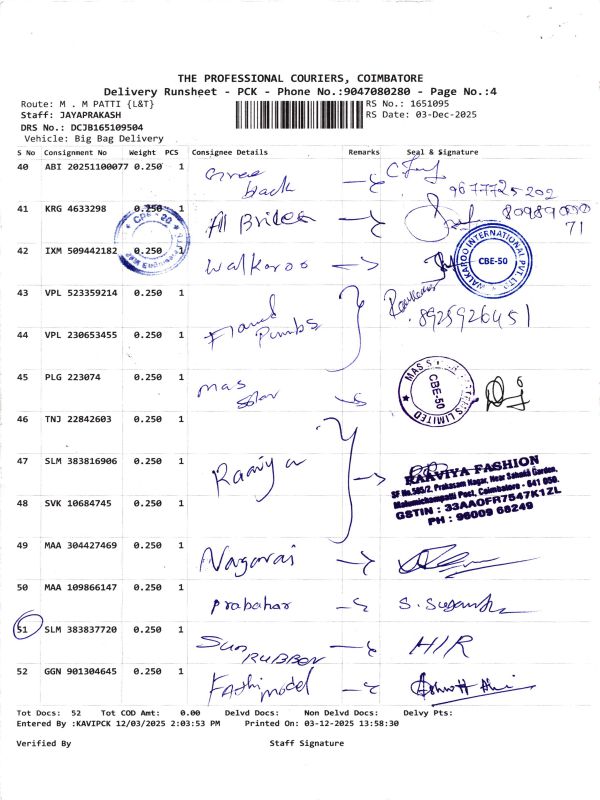 THE PROFESSIONAL COURIERS, COIMBATORE
Delivery Runsheet - PCK - Phone No.:9047080280 - Page No.:4
Route: M . M PATTI {L&T}
RS No.: 1651095
Staff: JAYAPRAKASH
RS Date: 03-Dec-2025
DRS No.: DCJB165109504
Vehicle: Big Bag Delivery
S No Consignment No Weight PCS Consignee Details Remarks Seal & Signature
40 ABI 20251100077 0.250 1
back
9677725202
41 KRG 4633298 0.250 1
CBE - 20
42 IXM 509442182 0.250 1 Walkaroo
WALKAROO INTERNATIONAL PVT. LTD
CBE-50
43 VPL 523359214 0.250 1
8925926451
44 VPL 230653455 0.250 1 Pumbs
45 PLG 223074 0.250 1 mas
Solar
CBE-50
LIMITED
46 TNJ 22842603 0.250 1
47 SLM 383816906 0.250 1 Raaviya
RAAVIYA FASHION
SF No.565/2, Prakasam Nagar, Near Sahara Garden,
Malumichampatti Post, Coimbatore - 641 050.
GSTIN : 33AAOFR7547K1ZL
PH : 96009 68249
48 SVK 10684745 0.250 1
49 MAA 304427469 0.250 1 Nagaraj
50 MAA 109866147 0.250 1 Prabahar
51 SLM 383837720 0.250 1 Sun
RUBBER
52 GGN 901304645 0.250 1
Tot Docs: 52 Tot COD Amt: 0.00 Delvd Docs: Non Delvd Docs: Delvy Pts:
Entered By :KAVIPCK 12/03/2025 2:03:53 PM Printed On: 03-12-2025 13:58:30
Verified By Staff Signature